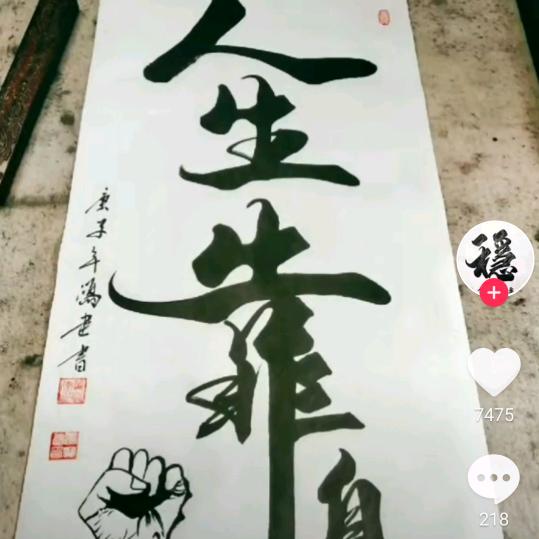 人生靠自
庚子年鴻建書
穩
7475
218